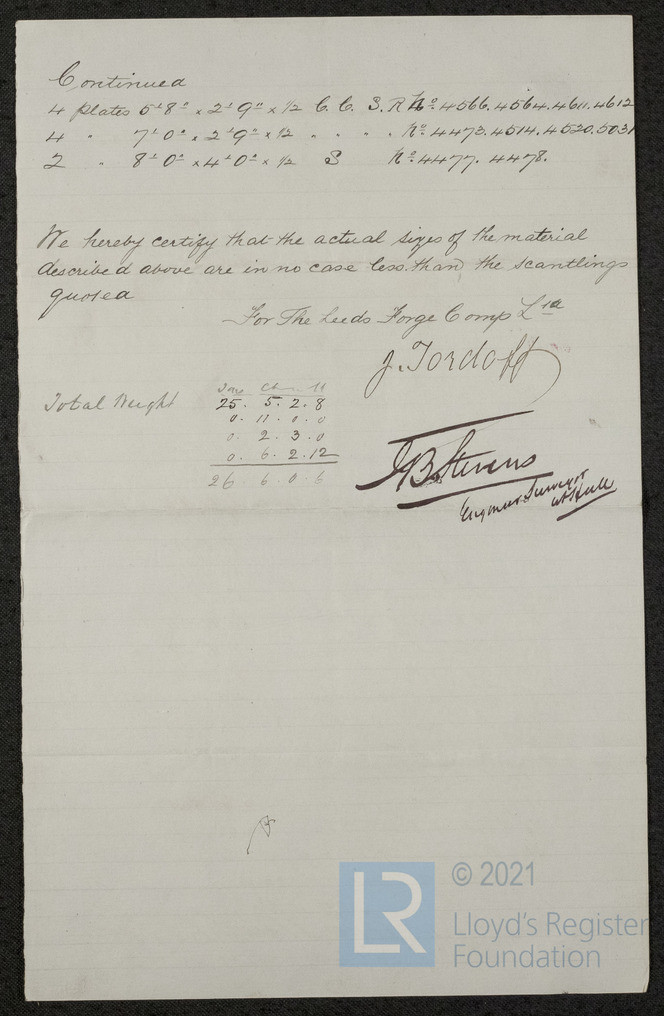 Continued
4 plates 5' 8" × 2' 9" × 1/2 C. C. S. R No 4566. 4564. 4611. 4612
4 " 7' 0" × 2' 9" × 1/2 " " " " No 4473. 4514. 4520. 5031
2 " 8' 0" × 4' 0" × 1/2 S No 4477. 4478.
We hereby certify that the actual sizes of the material
described above are in no case less than the scantlings
quoted
For The Leeds Forge Comp Ltd
J. Tordoff
Total Weight
25. 5. 2. 8
0. 11. 0. 0
0. 2. 3. 0
0. 6. 2. 12
26 6. 0. 6
J B Stevens
Engineer Surveyor
at Hull
LR
© 2021
Lloyd's Register
Foundation